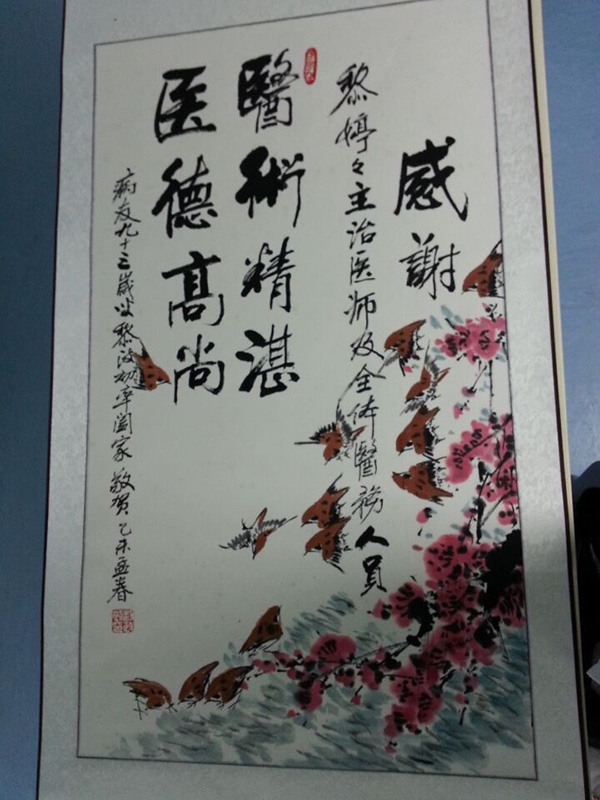 感謝
黎婷々主治医师及全体醫務人员
醫術精湛
医德高尚
病友九十三歲
率阖家敬贺乙未孟春